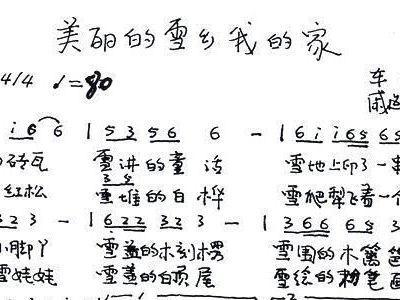 美丽的雪乡我的家
4/4 ♩=80 车
i 6 6 | 5 3 5 6 6 - | 6 i i 6 5 6
砖瓦 雪讲的童话 雪地上印了一串
3 5
红松 雪堆的白桦 雪爬犁飞着一个
3 2 3 - | 6 2 2 3 2 3 - | 3 6 6 6 5 3
小脚丫 雪盖的木刻楞 雪围的木篱笆
雪娃娃 雪盖的白顶屋 雪绘的粉笔画